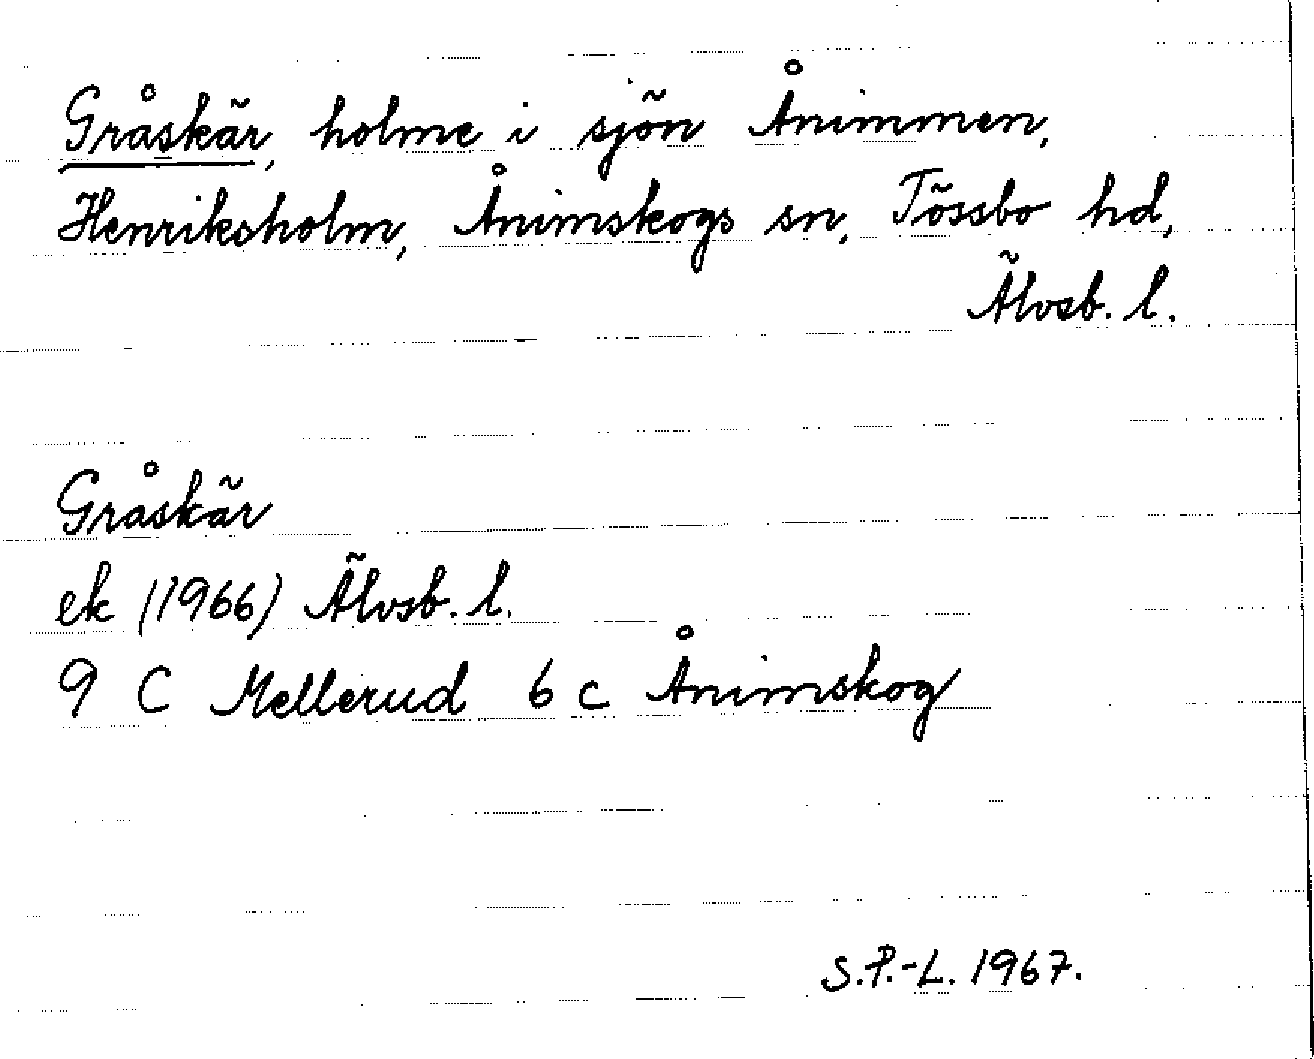 Gråskär, holme i sjön Ånimmen,
Henriksholm, Ånimskogs sn, Tössbo hd,
Älvsb. l.
Gråskär
ek (1966) Älvsb. l.
9 C Mellerud 6 c Ånimskog
S.P.-L. 1967.